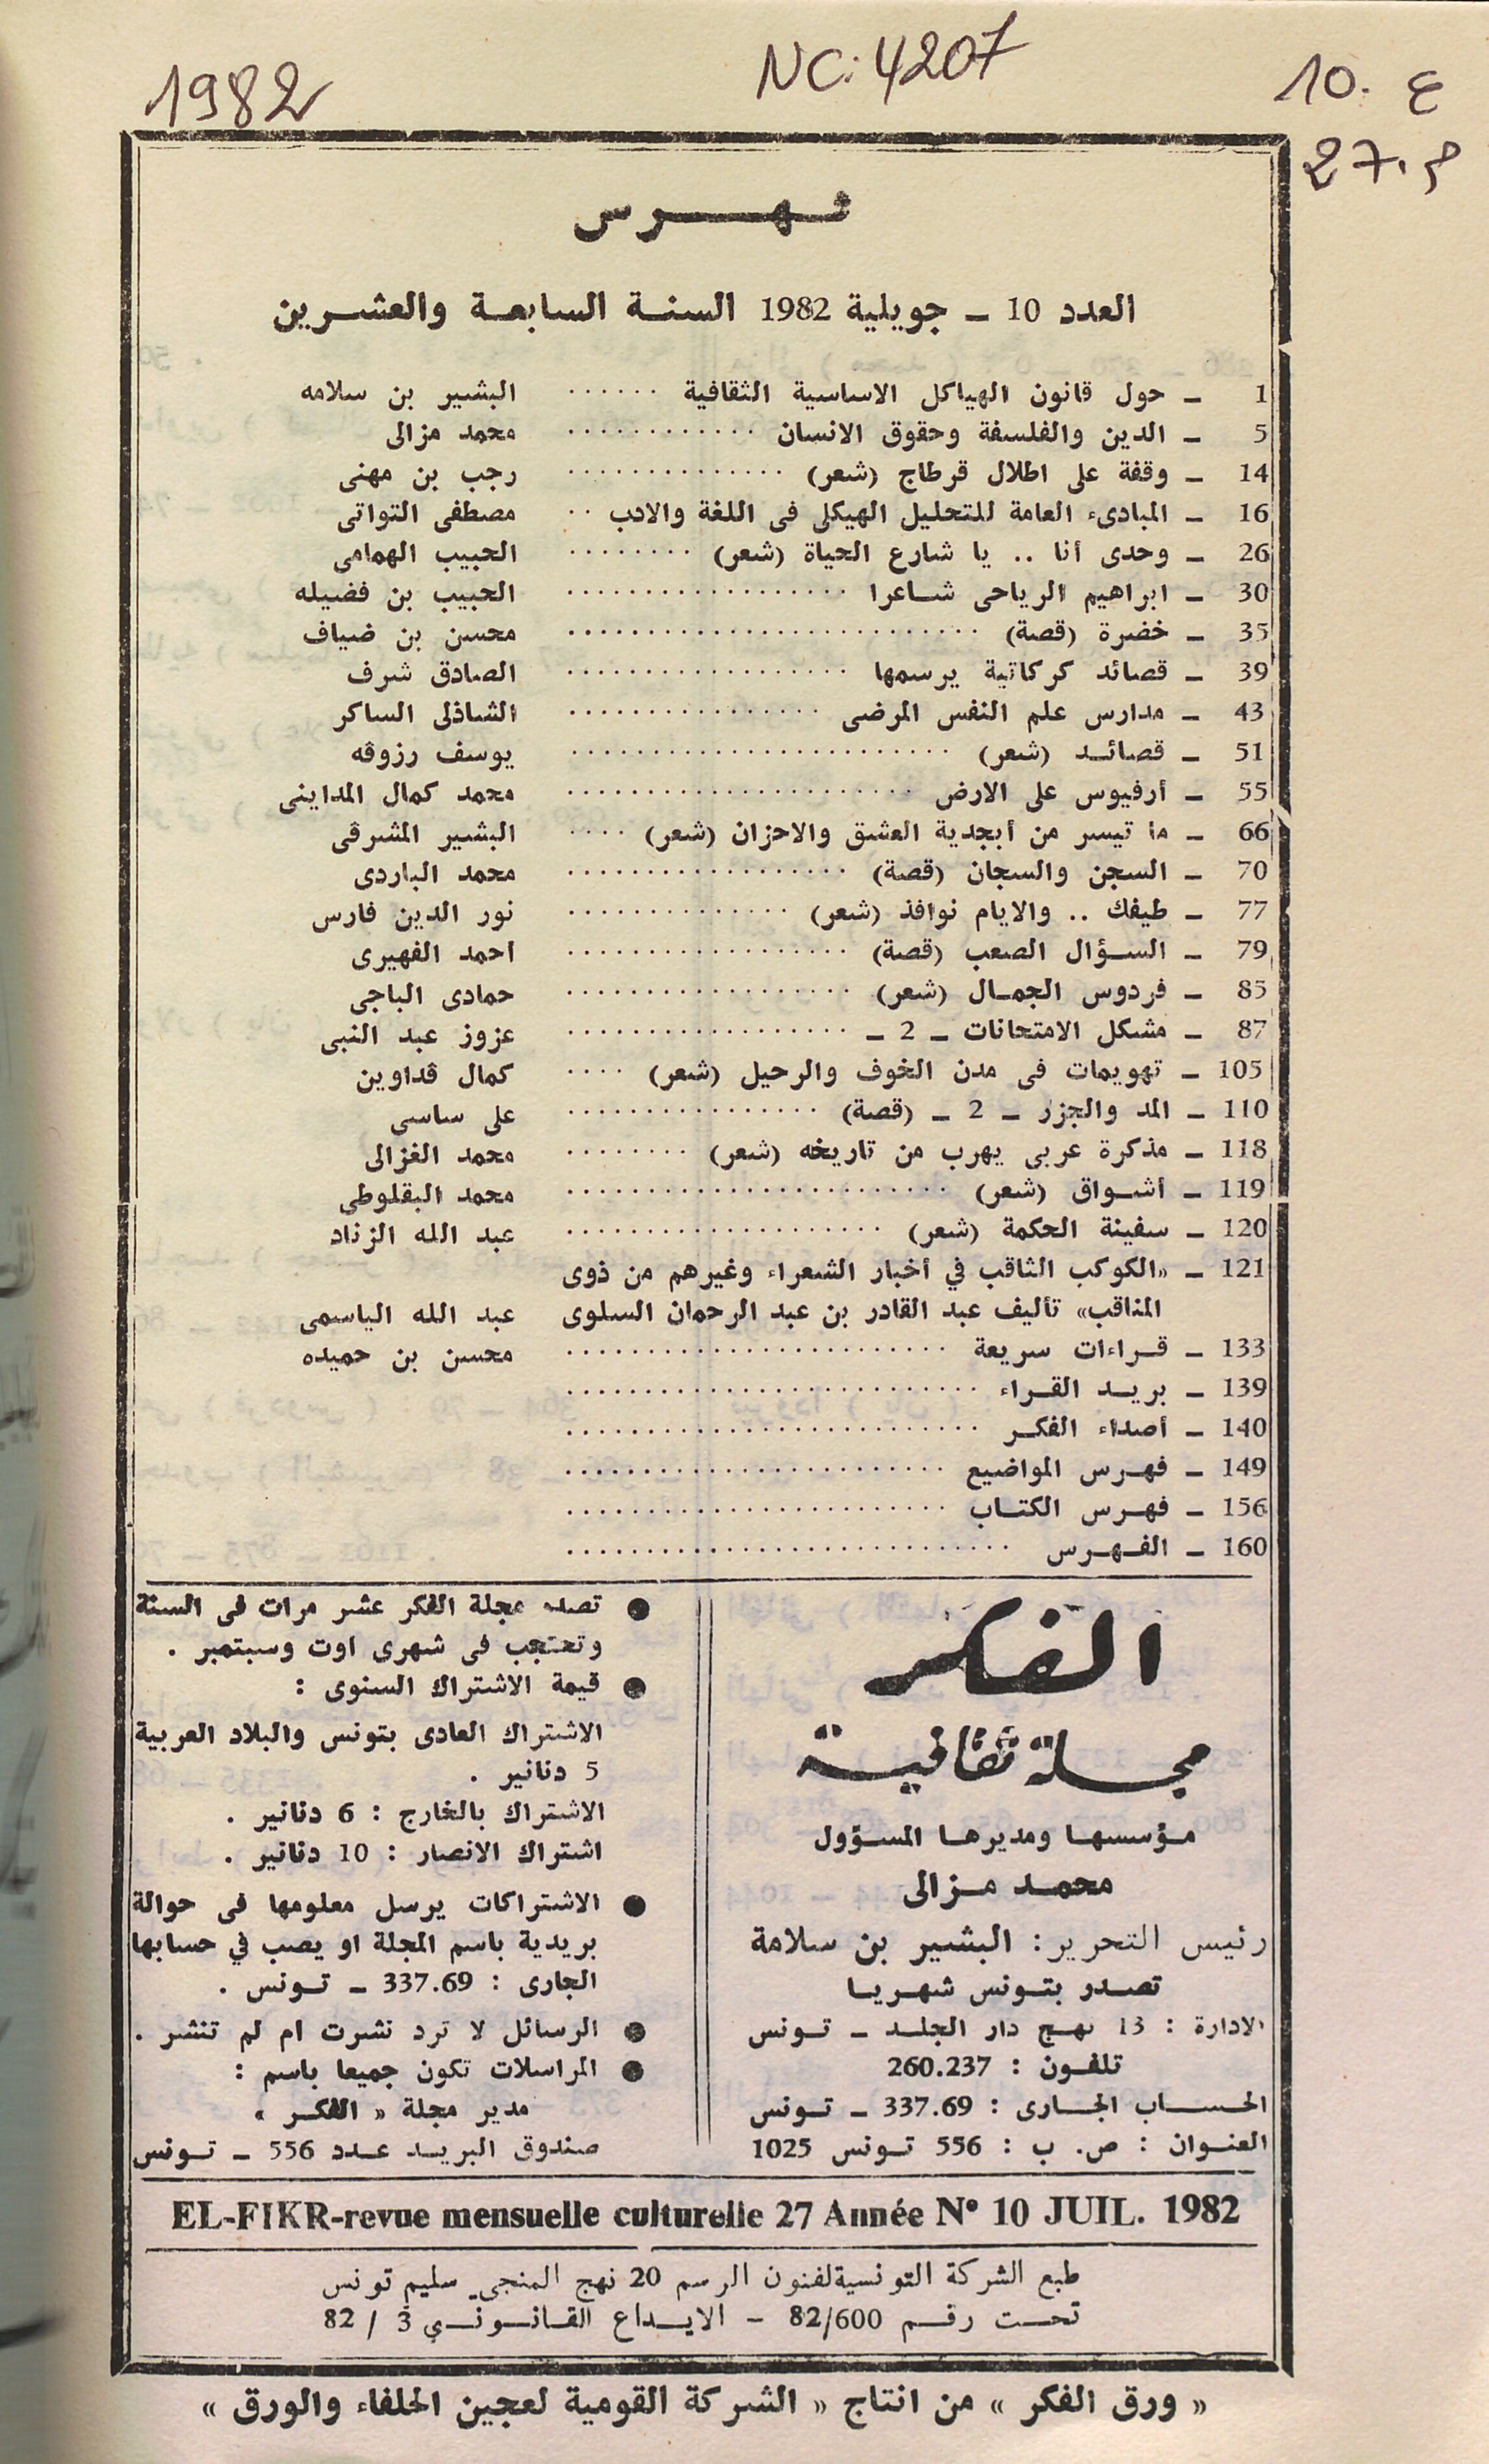 1982
NC: 4207
10. ع
27. م
فهرس
العدد 10 ــ جويلية 1982 السنة السابعة والعشرين
1 ــ حول قانون الهياكل الاساسية الثقافية ...... البشير بن سلامه
5 ــ الدين والفلسفة وحقوق الانسان ............ محمد مزالى
14 ــ وقفة على اطلال قرطاج (شعر) .............. رجب بن مهنى
16 ــ المبادىء العامة للتحليل الهيكلى فى اللغة والادب .. مصطفى التواتى
26 ــ وحدى أنا .. يا شارع الحياة (شعر) ........ الحبيب الهمامى
30 ــ ابراهيم الرياحى شاعرا .................. الحبيب بن فضيله
35 ــ خضرة (قصة) .......................... محسن بن ضياف
39 ــ قصائد كركاتية يرسمها .................. الصادق شرف
43 ــ مدارس علم النفس المرضى ................ الشاذلى الساكر
51 ــ قصائد (شعر) ........................ يوسف رزوقه
55 ــ أرفيوس على الارض ...................... محمد كمال المداينى
66 ــ ما تيسر من أبجدية العشق والاحزان (شعر) .... البشير المشرقى
70 ــ السجن والسجان (قصة) .................. محمد الباردى
77 ــ طيفك .. والايام نوافذ (شعر) .............. نور الدين فارس
79 ــ السؤال الصعب (قصة) .................. احمد الفهيرى
85 ــ فردوس الجمال (شعر) .................. حمادى الباجى
87 ــ مشكل الامتحانات ــ 2 ــ .................. عزوز عبد النبى
105 ــ تهويمات فى مدن الخوف والرحيل (شعر) .... كمال ڤداوين
110 ــ المد والجزر ــ 2 ــ (قصة) ................ على ساسى
118 ــ مذكرة عربى يهرب من تاريخه (شعر) ........ محمد الغزالى
119 ــ أشواق (شعر) ........................ محمد البقلوطى
120 ــ سفينة الحكمة (شعر) .................... عبد الله الزناد
121 ــ «الكوكب الثاقب في أخبار الشعراء وغيرهم من ذوى
المناقب» تأليف عبد القادر بن عبد الرحمان السلوى عبد الله الياسمى
133 ــ قراءات سريعة ........................ محسن بن حميده
139 ــ بريد القراء ..........................
140 ــ أصداء الفكر ..........................
149 ــ فهرس المواضيع ........................
156 ــ فهرس الكتاب ........................
160 ــ الفهرس ............................
الفكر
مجلة ثقافية
مؤسسها ومديرها المسؤول
محمد مزالى
رئيس التحرير : البشير بن سلامة
تصدر بتونس شهريا
الادارة : 13 نهج دار الجلد ــ تونس
تلفون : 260.237
الحساب الجارى : 337.69 ــ تونس
العنوان : ص. ب : 556 تونس 1025
● تصدر مجلة الفكر عشر مرات فى السنة
وتحتجب فى شهرى اوت وسبتمبر .
● قيمة الاشتراك السنوى :
الاشتراك العادى بتونس والبلاد العربية
5 دنانير .
الاشتراك بالخارج : 6 دنانير .
اشتراك الانصار : 10 دنانير .
● الاشتراكات يرسل معلومها فى حوالة
بريدية باسم المجلة او يصب في حسابها
الجارى : 337.69 ــ تونس .
● الرسائل لا ترد نشرت ام لم تنشر .
● المراسلات تكون جميعا باسم :
مدير مجلة « الفكر »
صندوق البريد عدد 556 ــ تونس
EL-FIKR-revue mensuelle culturelle 27 Année N° 10 JUIL. 1982
طبع الشركة التونسية لفنون الرسم 20 نهج المنجي سليم تونس
تحت رقم 82/600 – الايداع القانوني 3 / 82
« ورق الفكر » من انتاج « الشركة القومية لعجين الحلفاء والورق »